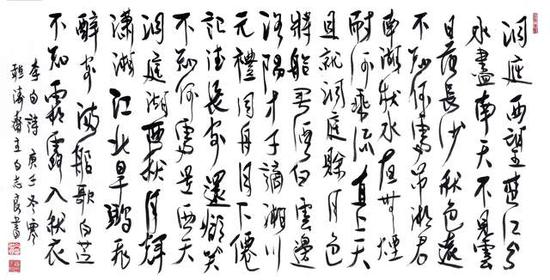 洞庭西望楚江分
水盡南天不見雲
日落長沙秋色遠
不知何處吊湘君
南湖秋水夜無煙
耐可乘流直上天
且就洞庭賒月色
將船買酒白雲邊
洛陽才子謫湘川
元禮同舟月下僊
記得長安還欲笑
不知何處是西天
洞庭湖西秋月輝
瀟湘江北早鴻飛
醉客滿船歌白苧
不知霜露入秋衣
李白詩 庚子冬寒
齋主白志良書